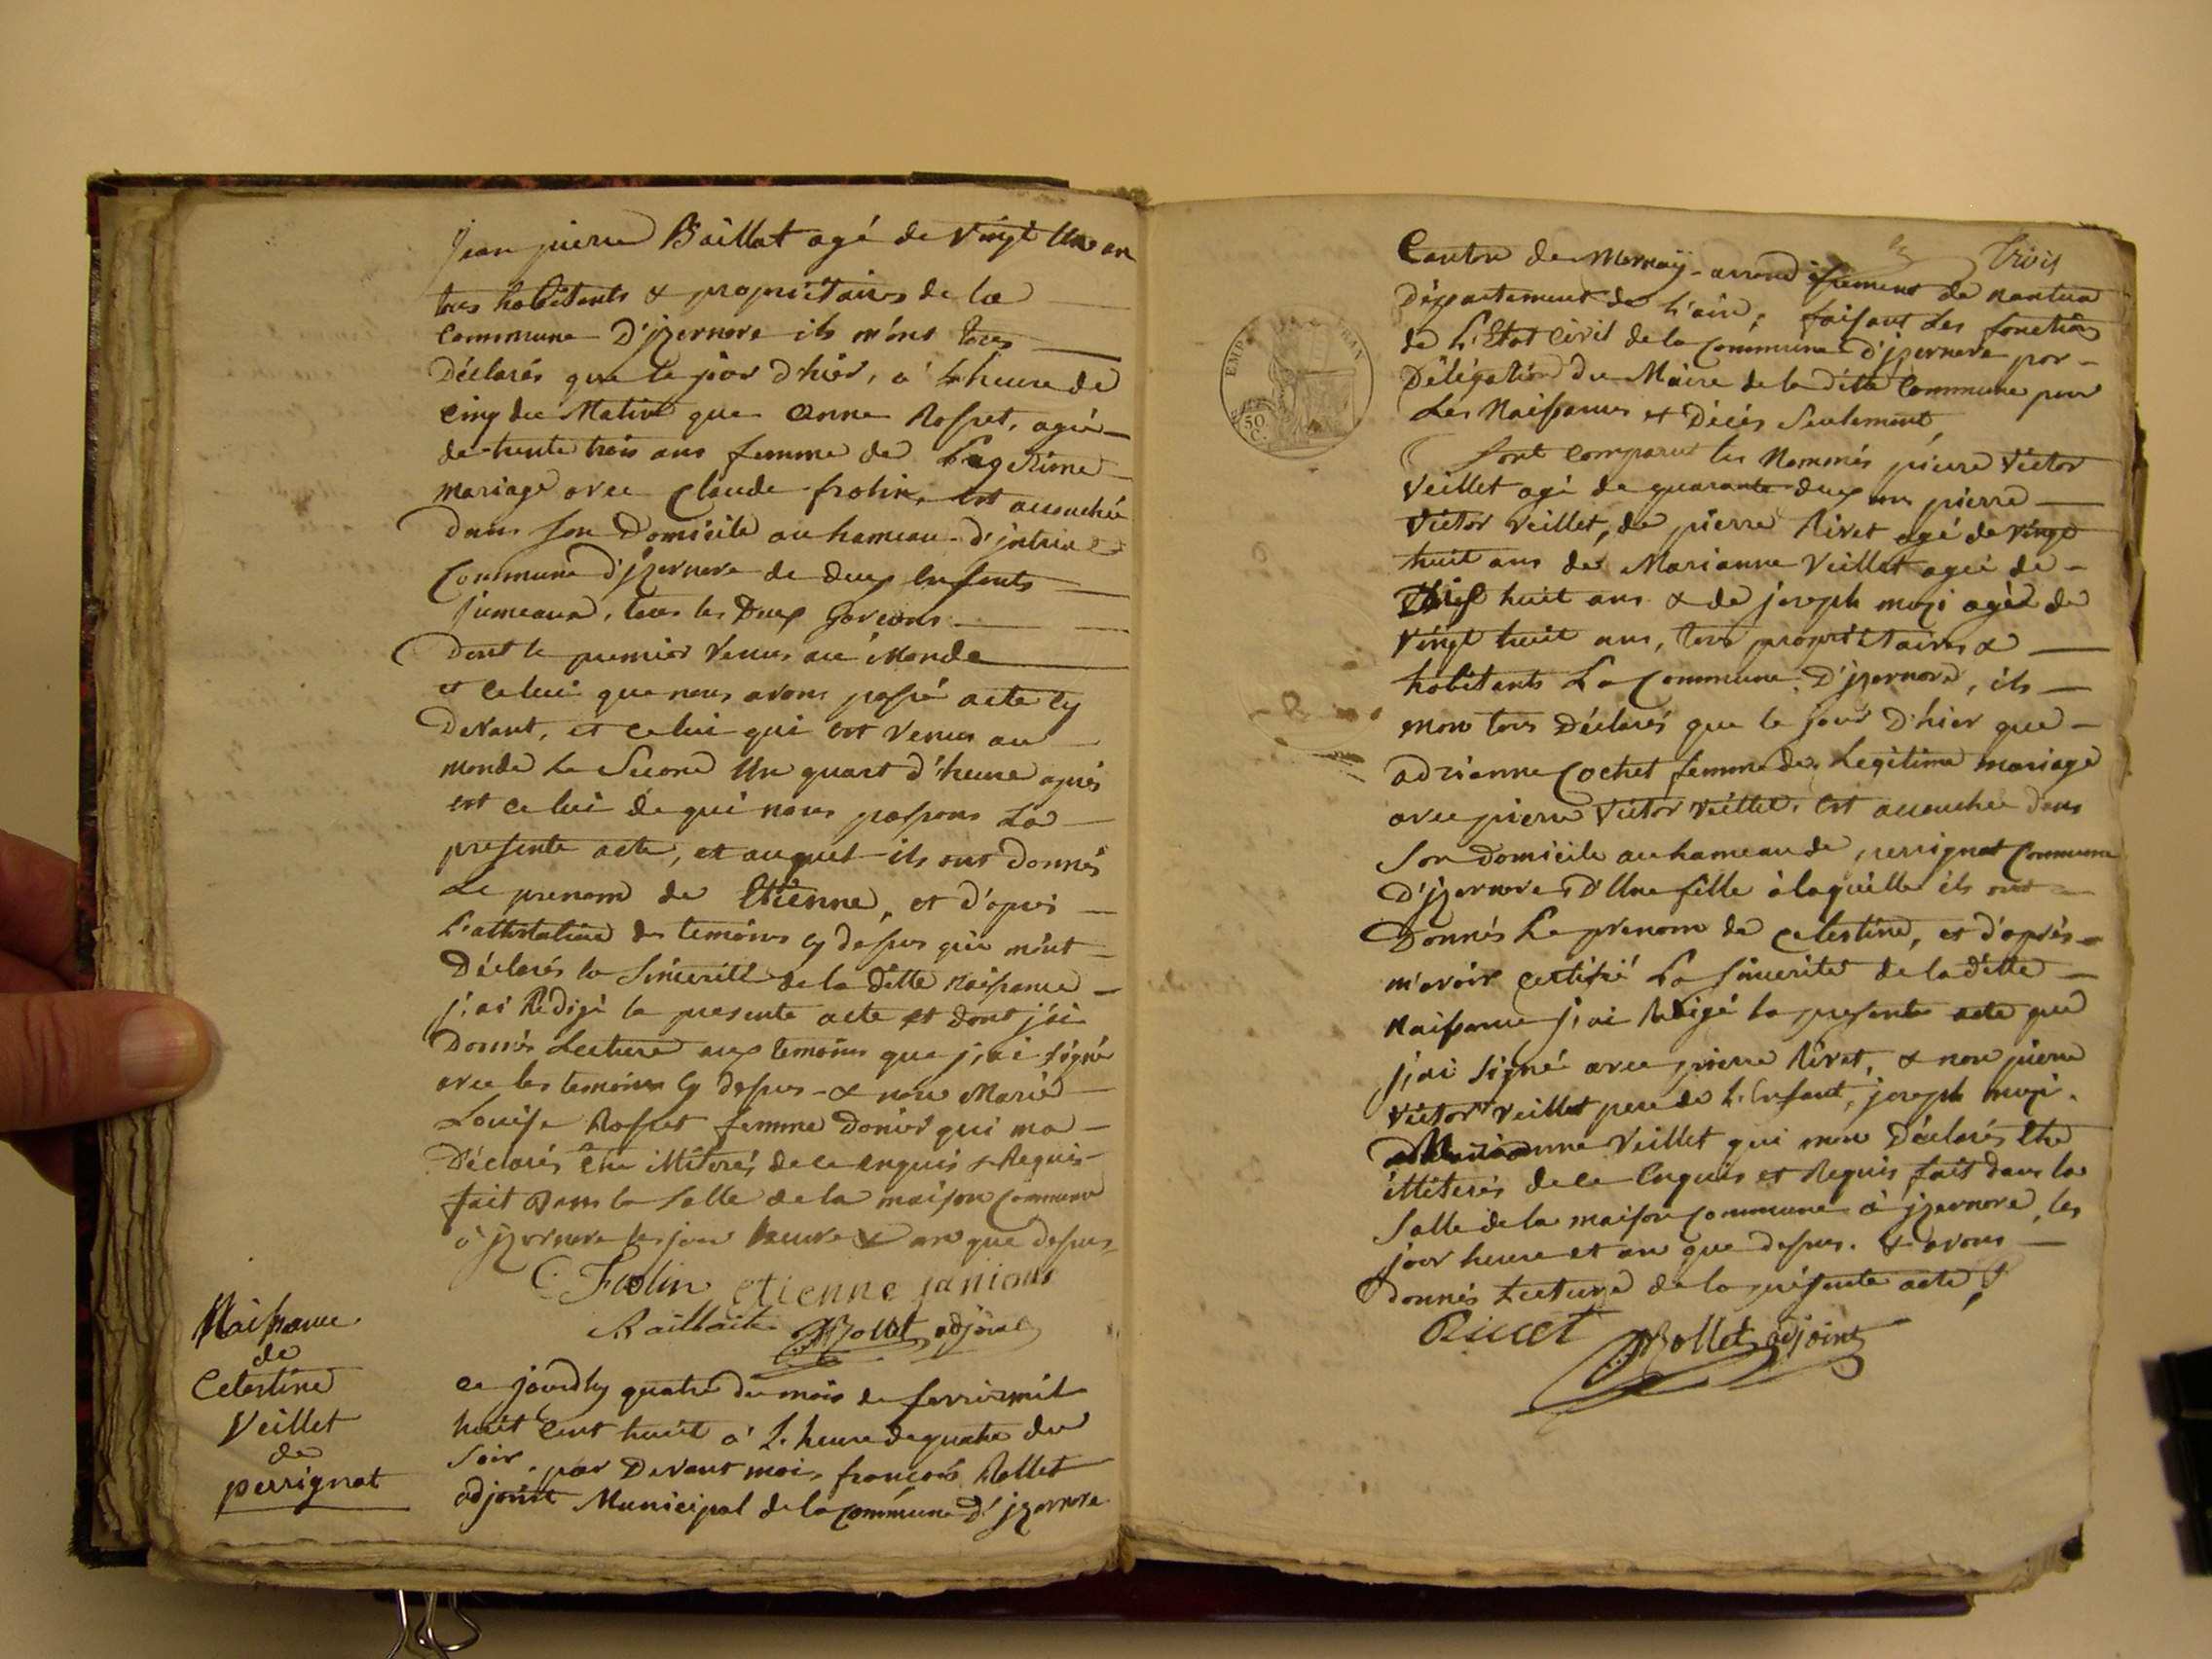 Jean pierre Baillat agé de Vingt Un an
tous habitants & propriétaires de la
Commune D'jzernore ils m'ont tous
Déclarés que le jour d'hier, a l'heure de
Cinq du Matin que Anne Rosset, agée
de trente trois ans femme de Legitime
mariage avec Claude frolin, Est accouchée
dans Son Domicile au hameau d'jntria
Commune d'jzernore de deux Enfants
jumeaux, tous les Deux Garcons
Dont le premier Venus au Monde
et Celui que nous avons passé acte Cy
Devant, et Celui qui est Venus au
monde Le Second Un quart d'heure après
est Celui de qui nous passons La
presente acte, et auquel ils ont Donnés
Le prenom de Etienne, et d'après
L'attestation des temoins Cy dessus qui m'ont
Déclarés la Sincerité de la ditte Naissance
j'ai Rédigé la presente acte et dont j'ai
Donnés Lecture aux temoins que j'ai signé
avec les temoins Cy dessus & non Marie
Louise Rosset femme Donier qui ma
Déclarés Etre illiterés de ce enquis & Requis
fait Dans la Salle de la maison Commune
à jzernore les jour heure & an que dessus
C. Frolin etienne janious
Baillat Rollet adjoint
Naissance
de
Celestine
Veillet
de
perrignat
Ce jourdhy quatre du mois de fevrier mil
huit Cent huit a L'heure de quatre du
Soir, par Devant moi, françois Rollet
adjoint Municipal de la Commune D'jzernore
trois
Canton de Mornaÿ arrondissement de nantua
Département de L'ain, faisant Les fonctions
de L'Etat Civil de la Commune d'jzernore par
Délégation du Maire de la ditte Commune pour
Les Naissances et Décès Seulement,
Sont Comparus les Nommés pierre Victor
Veillet agé de quarante deux ans pierre
Victor Veillet, de pierre Rivet agé de Vingt
huit ans de Marianne Veillet agée de
huit ans & de joseph muzi agée de
Vingt huit ans, tous propriétaires &
habitants La Commune D'jzernore, ils
mon tous Déclarés que le jour D'hier que
adrianne Cochet femme de Legitime mariage
avec pierre Victor Veillet, Est accouchée dans
Son domicile au hameau de perrignat Commune
D'jzernore D'Une fille à laquelle ils ont
Donnés Le prenom de Celestine, et d'après
m'avoir Certifié La Sincerité de la ditte
Naissance j'ai Redigé la presente acte que
j'ai Signé avec pierre Rivet, & non pierre
Victor Veillet pere de L'Enfant, joseph muzi,
Marianne Veillet qui mon Déclarés Etre
illiterés de ce Enquis et Requis fait dans la
Salle de la maison Commune à jzernore, les
jour heure et an que dessus. & avons
donnés Lecture de la présente acte
Rivet Rollet adjoint
EMP FRAN
50
C.